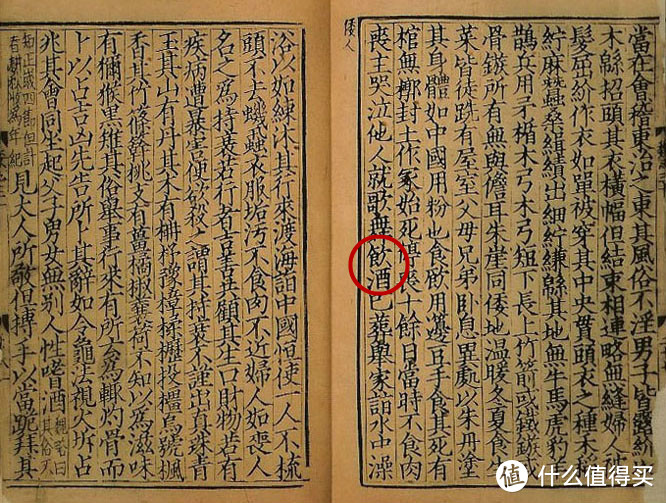 倭人
當在會稽東治之東其風俗不淫男子皆露紒
木緜招頭其衣橫幅但結束相連略無縫婦人
髮屈紒作衣如單被穿其中央貫頭衣之種禾
紵麻蠶桑緝績出細紵縑緜其地無牛馬虎豹
鵲兵用矛楯木弓木弓短下長上竹箭或鐵鏃
骨鏃所有無與儋耳朱崖同倭地溫暖冬夏食生
菜皆徒跣有屋室父母兄弟臥息異處以朱丹塗
其身體如中國用粉也食飲用籩豆手食其死有
棺無槨封土作冢始死停喪十餘日當時不食肉
喪主哭泣他人就歌舞飲酒已葬舉家詣水中澡
浴以如練沐其行來渡海詣中國恒使一人不梳
頭不去蟣蝨衣服垢污不食肉不近婦人如喪人
名之為持衰若行者吉善共顧其生口財物若有
疾病遭暴害便欲殺之謂其持衰不謹出真珠青
玉其山有丹其木有柟杼豫樟楺櫪投橿烏號楓
香其竹篠簳桃支有薑橘椒蘘荷不知以為滋味
有獮猴黑雉其俗舉事行來有所云為輒灼骨而
卜以占吉凶先告所卜其辭如令龜法視火坼占
兆其會同坐起父子男女無別人性嗜酒魏略曰其俗不
知正歲四節但計春耕秋收為年紀見大人所敬但搏手以當跪拜其
值 什么值得买